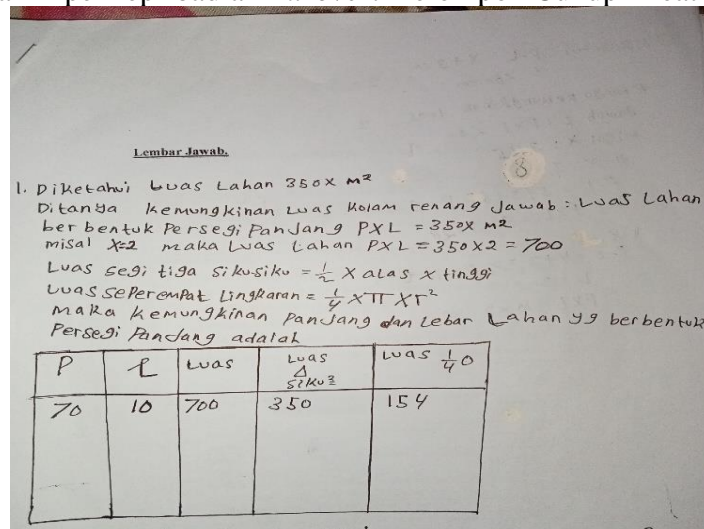 Lembar Jawab.
8
1. Diketahui Luas Lahan 350x m²
Ditanya kemungkinan luas kolam renang Jawab: Luas Lahan
berbentuk Persegi Panjang PXL = 350x m²
misal X=2 maka Luas Lahan PXL = 350x2 = 700
Luas segi tiga siku-siku = 1/2 x alas x tinggi
Luas seperempat Lingkaran = 1/4 x π x r²
maka kemungkinan panjang dan Lebar Lahan yg berbentuk
Persegi Panjang adalah
P L Luas Luas Δ siku² Luas 1/4 O
70 10 700 350 154